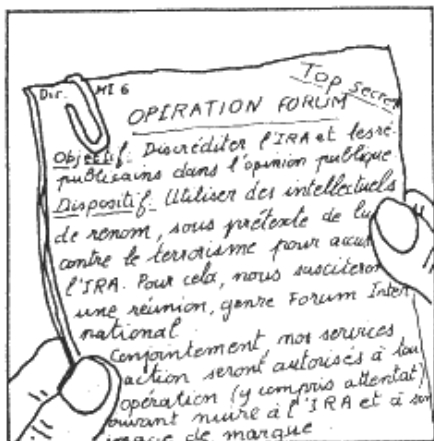 Top secret
Dir. MI 6
OPERATION FORUM
Objectif: Discréditer l'IRA et les ré-
publicains dans l'opinion publique
Dispositif: Utiliser des intellectuels
de renom, sous prétexte de
contre le terrorisme pour
l'IRA. Pour cela, nous
une réunion, genre Forum Inter
national.
Conjointement, nos services
action seront autorisés à
opération (y compris attentat)
nuire à l'IRA et à son
image de marque